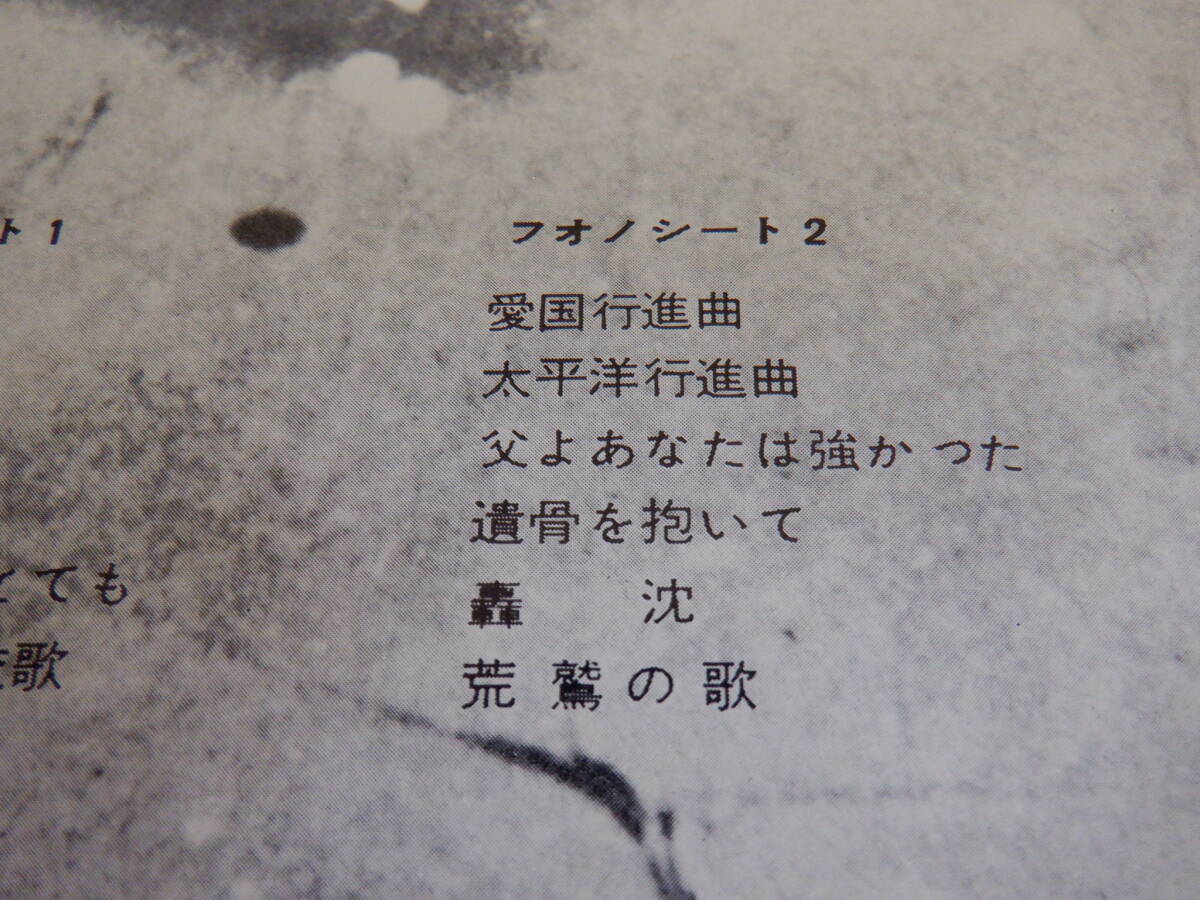 ト 1
フオノシート 2
愛国行進曲
太平洋行進曲
父よあなたは強かつた
遺骨を抱いて
轟 沈
荒鷲の歌
とても
歌